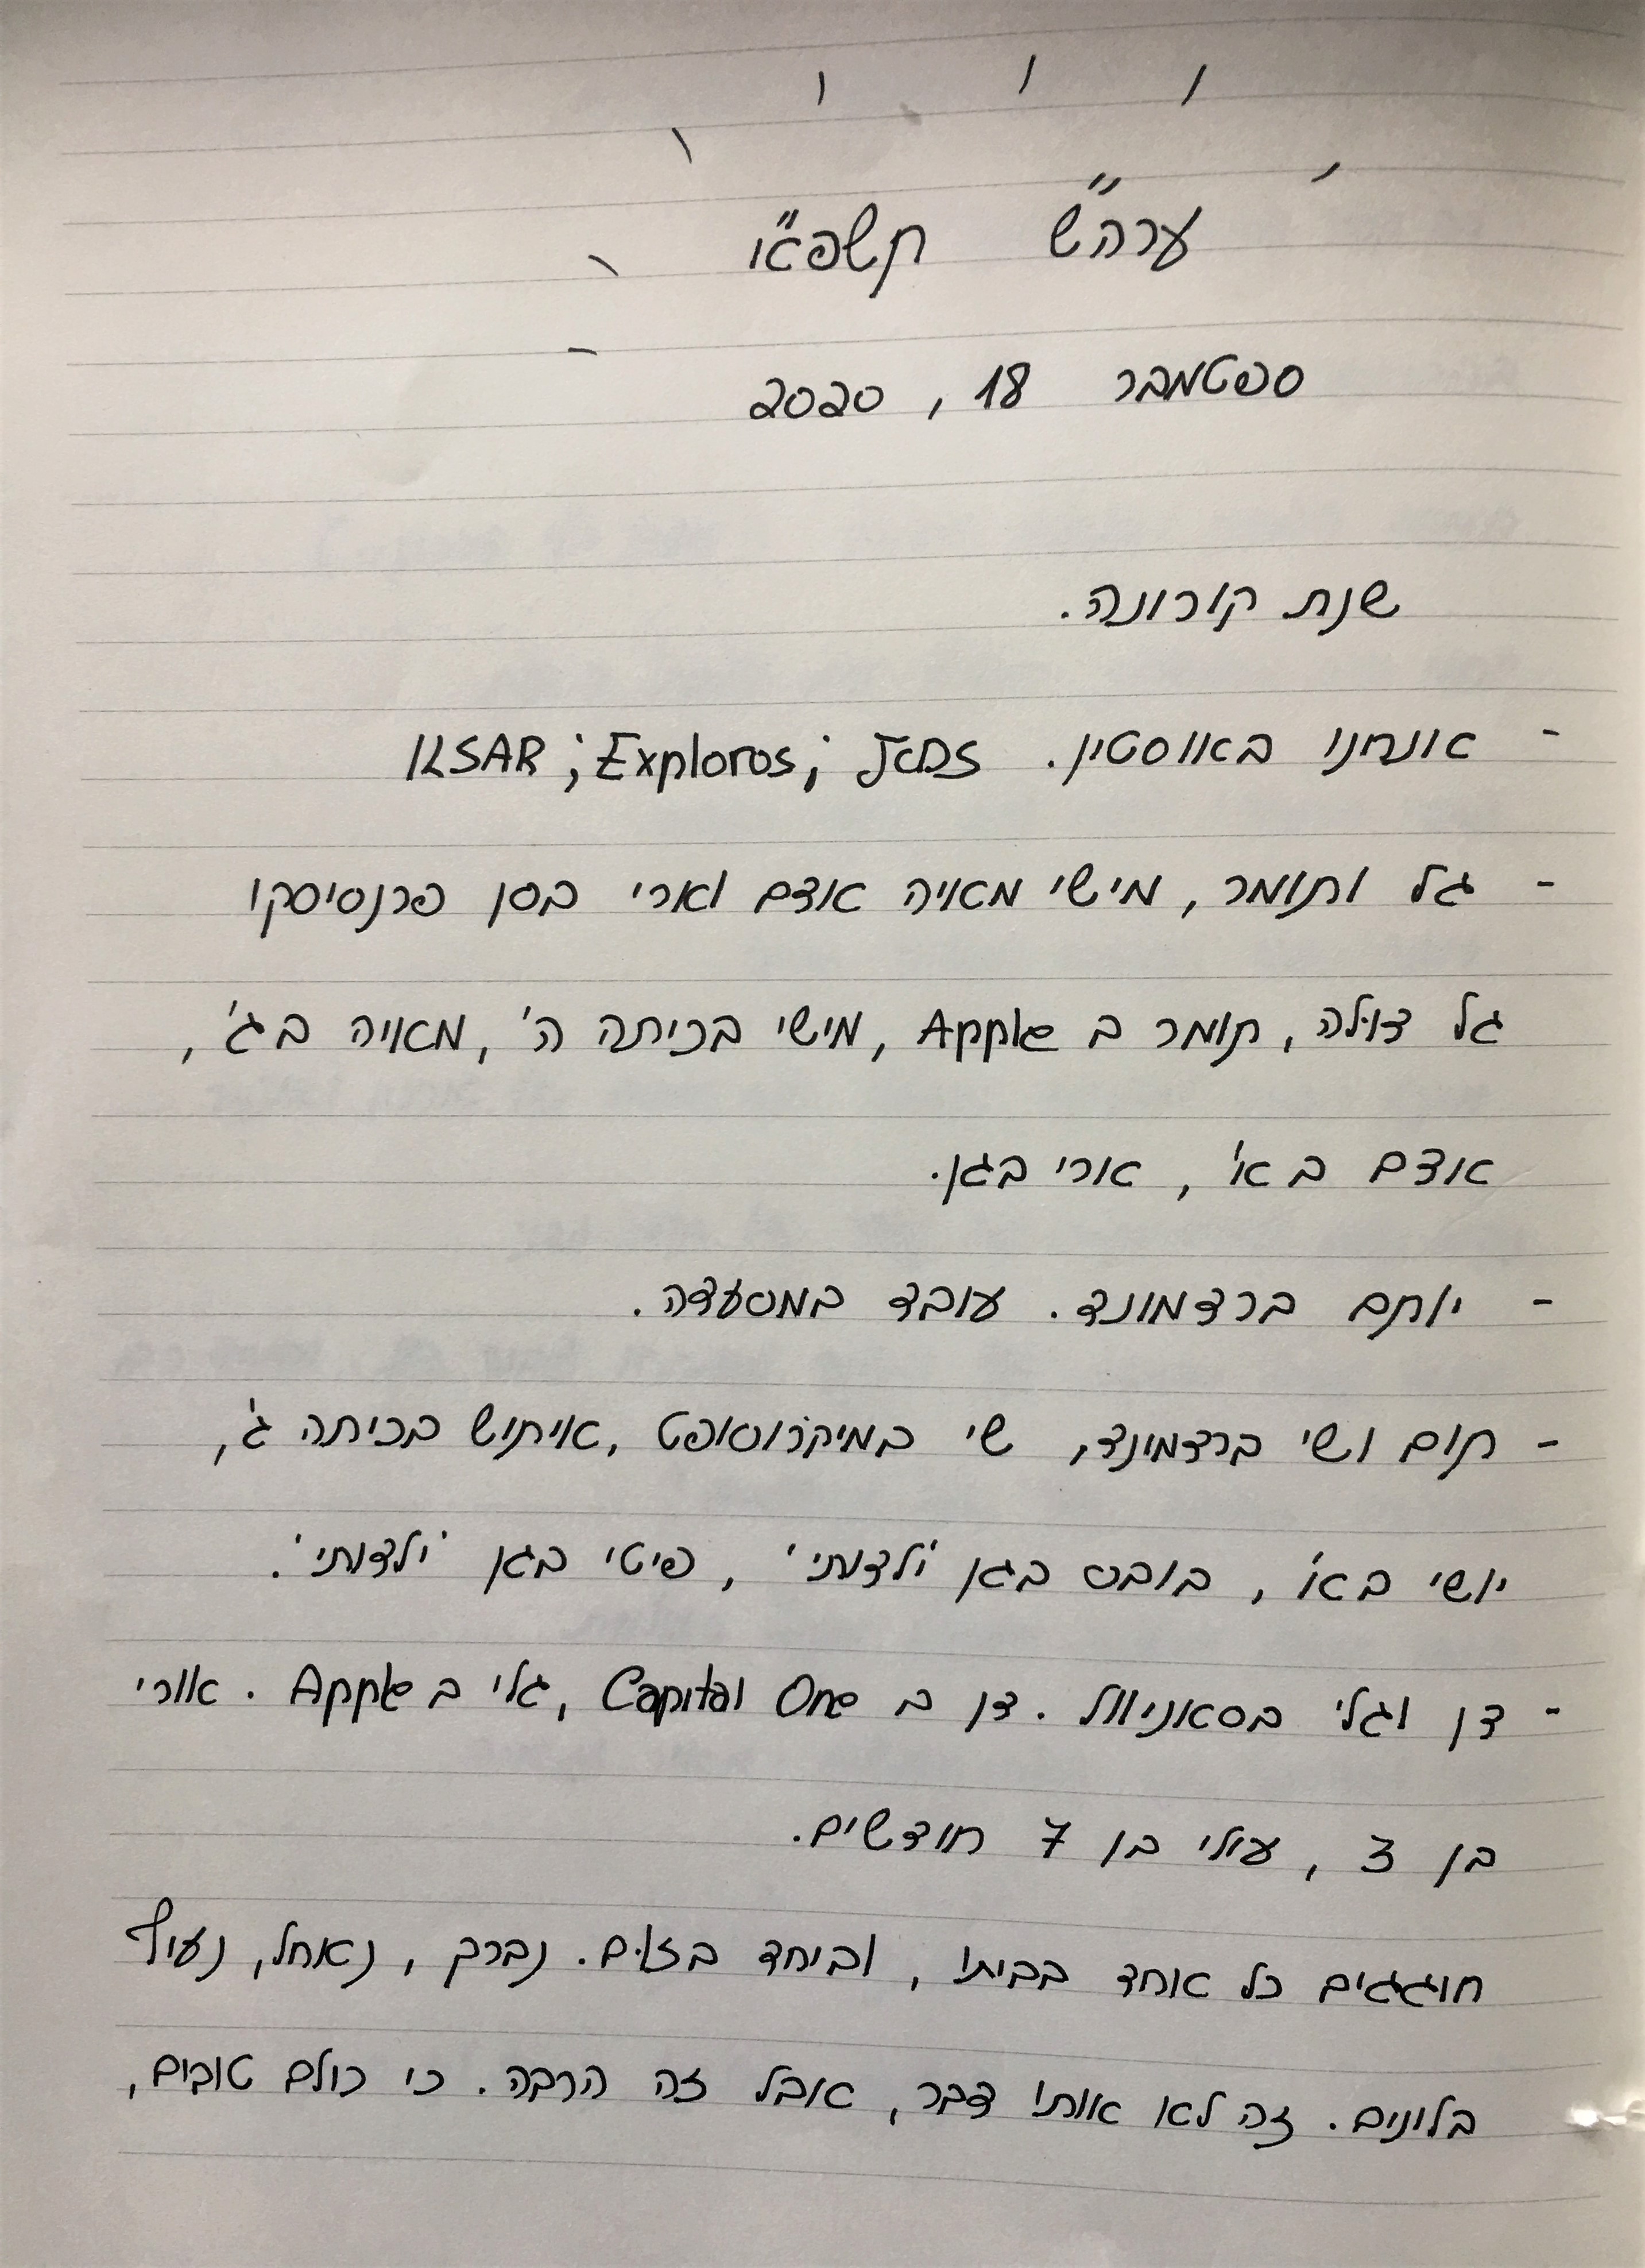 ערה"ש תשפ"או
ספטמבר 18, 2020
שנת קורונה.
- אנחנו באוסטין. JCDS ; Exploros ; ILSAR
- גל ותומר, מישי מאויה אדם וארי בסן פרנסיסקו
גל דולה, תומר ב Apple, מישי בכיתה ה', מאויה בג',
אדם ב א', ארי בגן.
- יותם ברדמונד. עובד במסעדה.
- תום ושי ברדמונד, שי במיקרוסופט, איתוש בכיתה ג',
יושי בא', בובס בגן 'ילדותי', פיטי בגן 'ילדותי'.
- דן וגלי בסאניוול. דן ב Capital One, גלי ב Apple. אורי
בן 3, עולי בן 7 חודשים.
חוגגים כל אחד בביתו, וביחד בזום. נברך, נאחל, נעיף
בלונים. זה לא אותו דבר, אבל זה הרבה. כי כולם טובים,